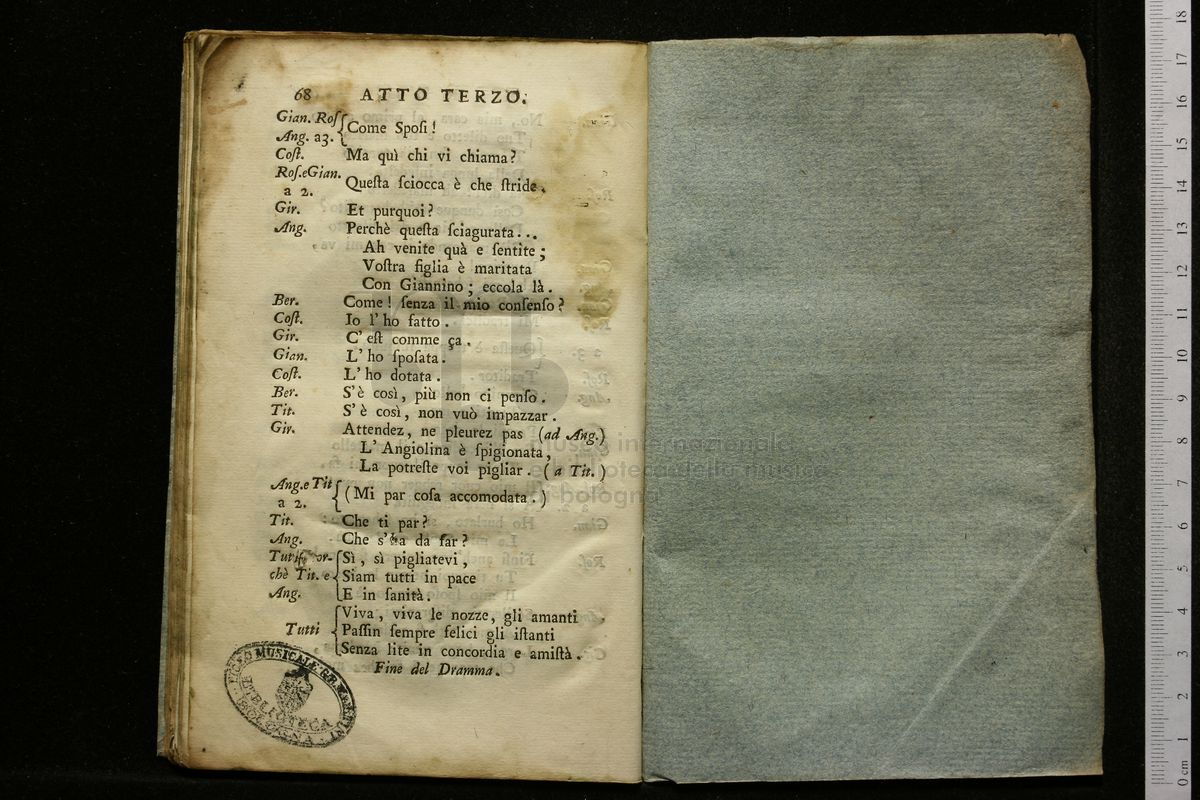 68 ATTO TERZO.
Gian. Roſ
Ang. a3. { Come Spoſi!
Coſt. Ma quì chi vi chiama?
Roſ.eGian.
a 2. Queſta ſciocca è che ſtride.
Gir. Et purquoi?
Ang. Perchè queſta ſciagurata...
Ah venite quà e ſentite;
Voſtra figlia è maritata
Con Giannino; eccola là.
Ber. Come! ſenza il mio conſenſo?
Coſt. Io l'ho fatto.
Gir. C'eſt comme ça.
Gian. L'ho ſpoſata.
Coſt. L'ho dotata.
Ber. S'è così, più non ci penſo.
Tit. S'è così, non vuò impazzar.
Gir. Attendez, ne pleurez pas (ad Ang.)
L'Angiolina è ſpigionata,
La potreſte voi pigliar. (a Tit.)
Ang.e Tit
a 2. { (Mi par coſa accomodata.)
Tit. Che ti par?
Ang. Che s'ha da far?
Sì, sì pigliatevi,
chè Tit. e Siam tutti in pace
Ang. E in ſanità.
Viva, viva le nozze, gli amanti
Tutti { Paſſin ſempre felici gli iſtanti
Senza lite in concordia e amiſtà.
Fine del Dramma.
MUSICALE
BIBLIOTECA
BOLOGNA
museo internazionale
e biblioteca della musica
di bologna
0 cm 1 2 3 4 5 6 7 8 9 10 11 12 13 14 15 16 17 18